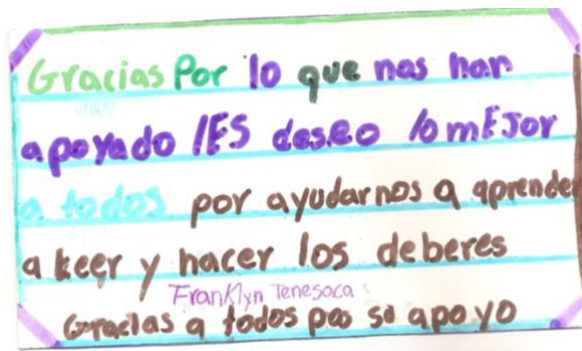 Gracias Por lo que nos han
apoyado lES deseo lo mEJor
a todos por ayudarnos a aprender
a leer y hacer los deberes
Franklyn Tenesaca
Gracias a todos por su apoyo